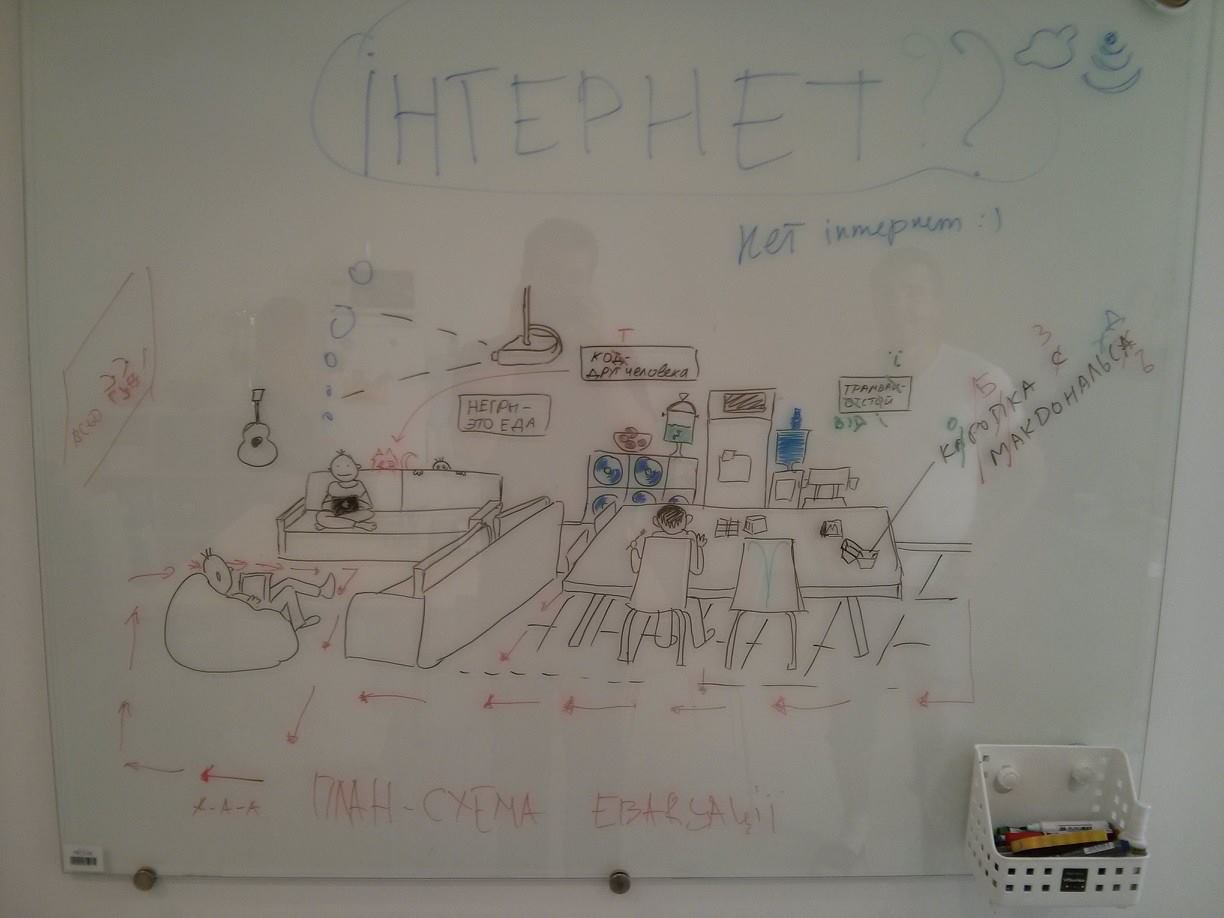 ІНТЕРНЕТ??
Нет інтернет :)
Т
КОД-
ДРУГ ЧЕЛОВЕКА
НЕГРЫ-
ЭТО ЕДА
і
ТРАМВАЙ-
ОТСТОЙ
КАРОПКА
МАКДОНАЛЬСА
А-А-А
ПЛАН-СХЕМА ЕВАКУАЦІЇ